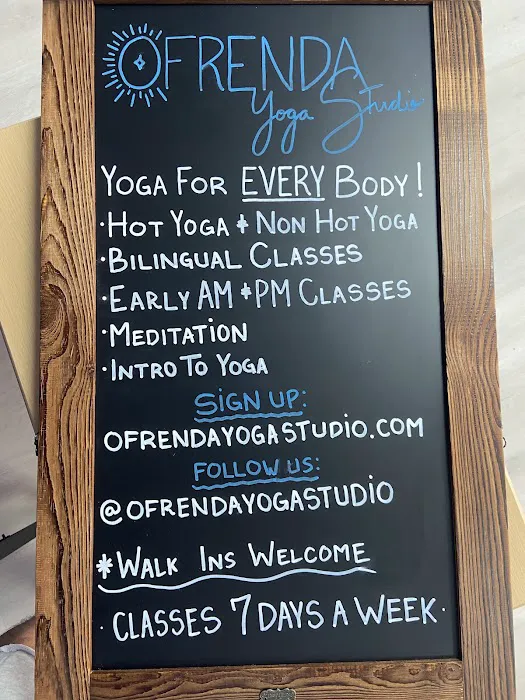 OFRENDA
Yoga Studio
YOGA FOR EVERY BODY!
·HOT YOGA & NON HOT YOGA
·BILINGUAL CLASSES
·EARLY AM & PM CLASSES
·MEDITATION
·INTRO TO YOGA
SIGN UP:
OFRENDAYOGASTUDIO.COM
FOLLOW US:
@OFRENDAYOGASTUDIO
*WALK INS WELCOME
· CLASSES 7 DAYS A WEEK·